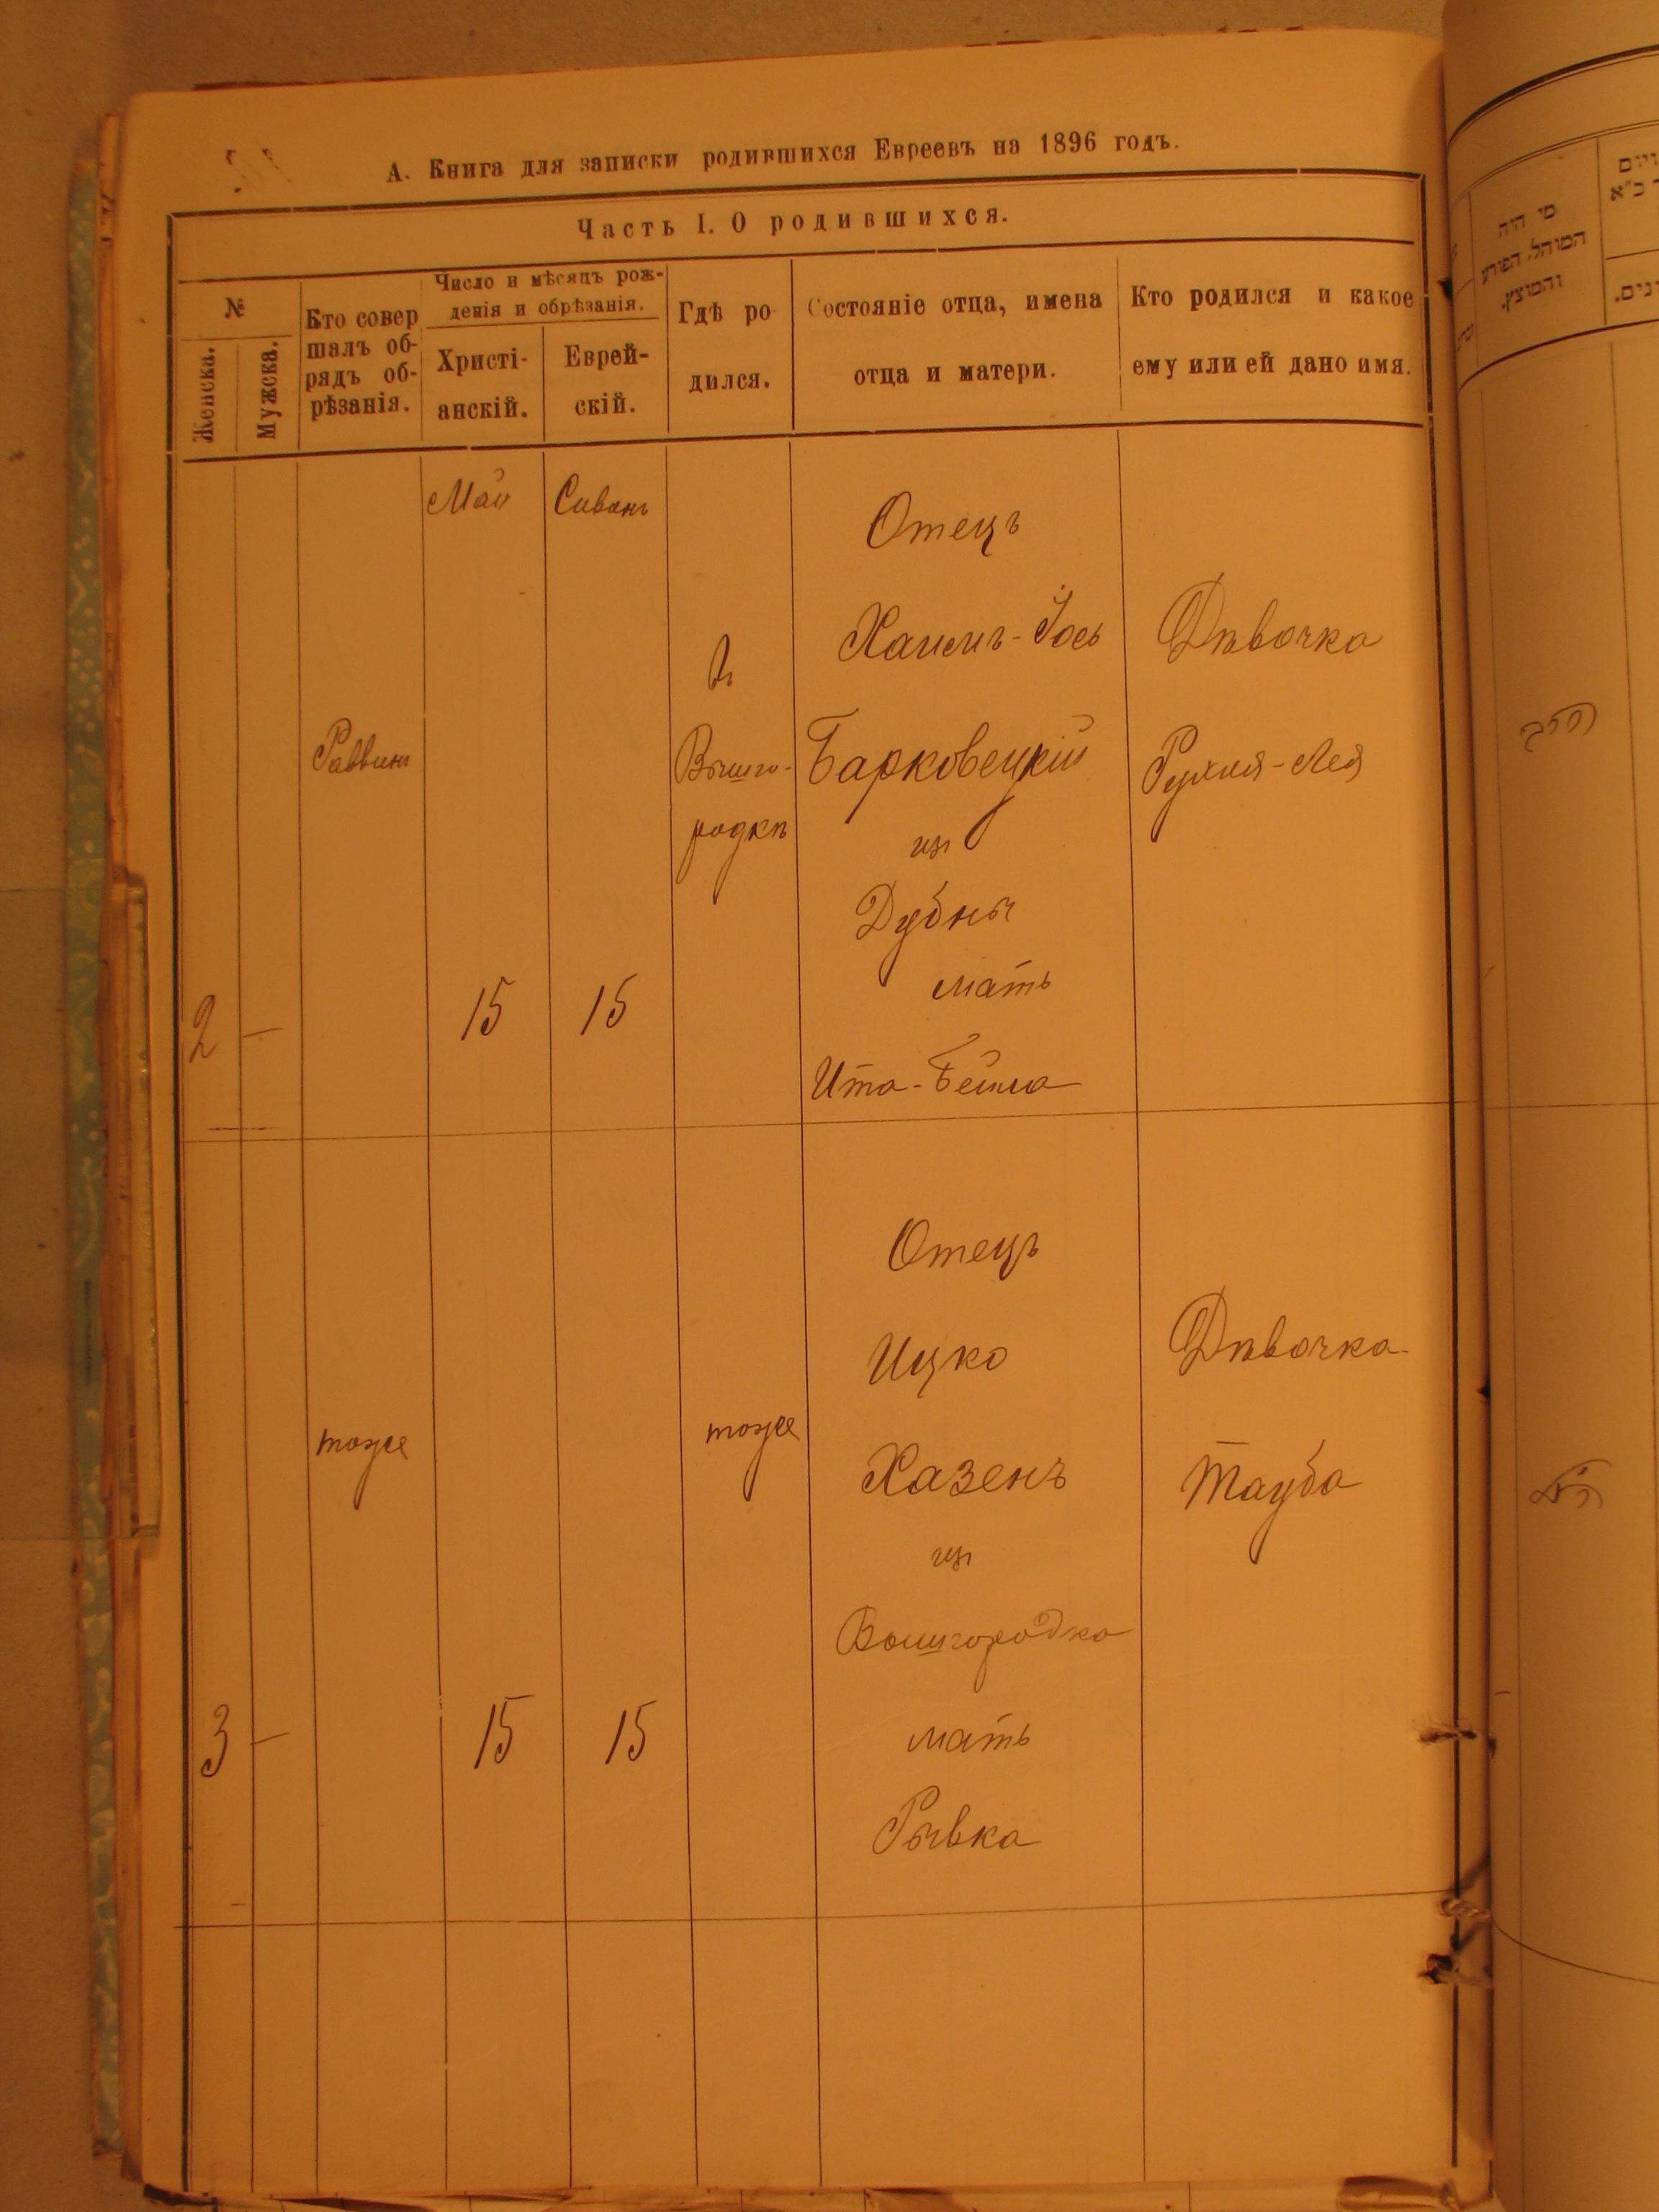 А. Книга для записки родившихся Евреевъ на 1896 годъ.
Часть I. О родившихся.
№
Женска.
Мужска.
Кто совер
шалъ об-
рядъ об-
рѣзанія.
Число и мѣсяцъ рож-
денія и обрѣзанія.
Христі-
анскій.
Еврей-
скій.
Гдѣ ро-
дился.
Состояніе отца, имена
отца и матери.
Кто родился и какое
ему или ей дано имя.
Май
Сиванъ
2
—
Раввинъ
15
15
въ
Вышго-
родкѣ
Отецъ
Хаимъ-Іось
Барковецкій
изъ
Дубны
мать
Ита-Бейла
Дѣвочка
Рухля-Лея
3
—
тоже
15
15
тоже
Отецъ
Ицко
Хазенъ
изъ
Вышгородка
мать
Рывка
Дѣвочка
Тауба
מי היה
המוהל, הפורע
והמוצץ.